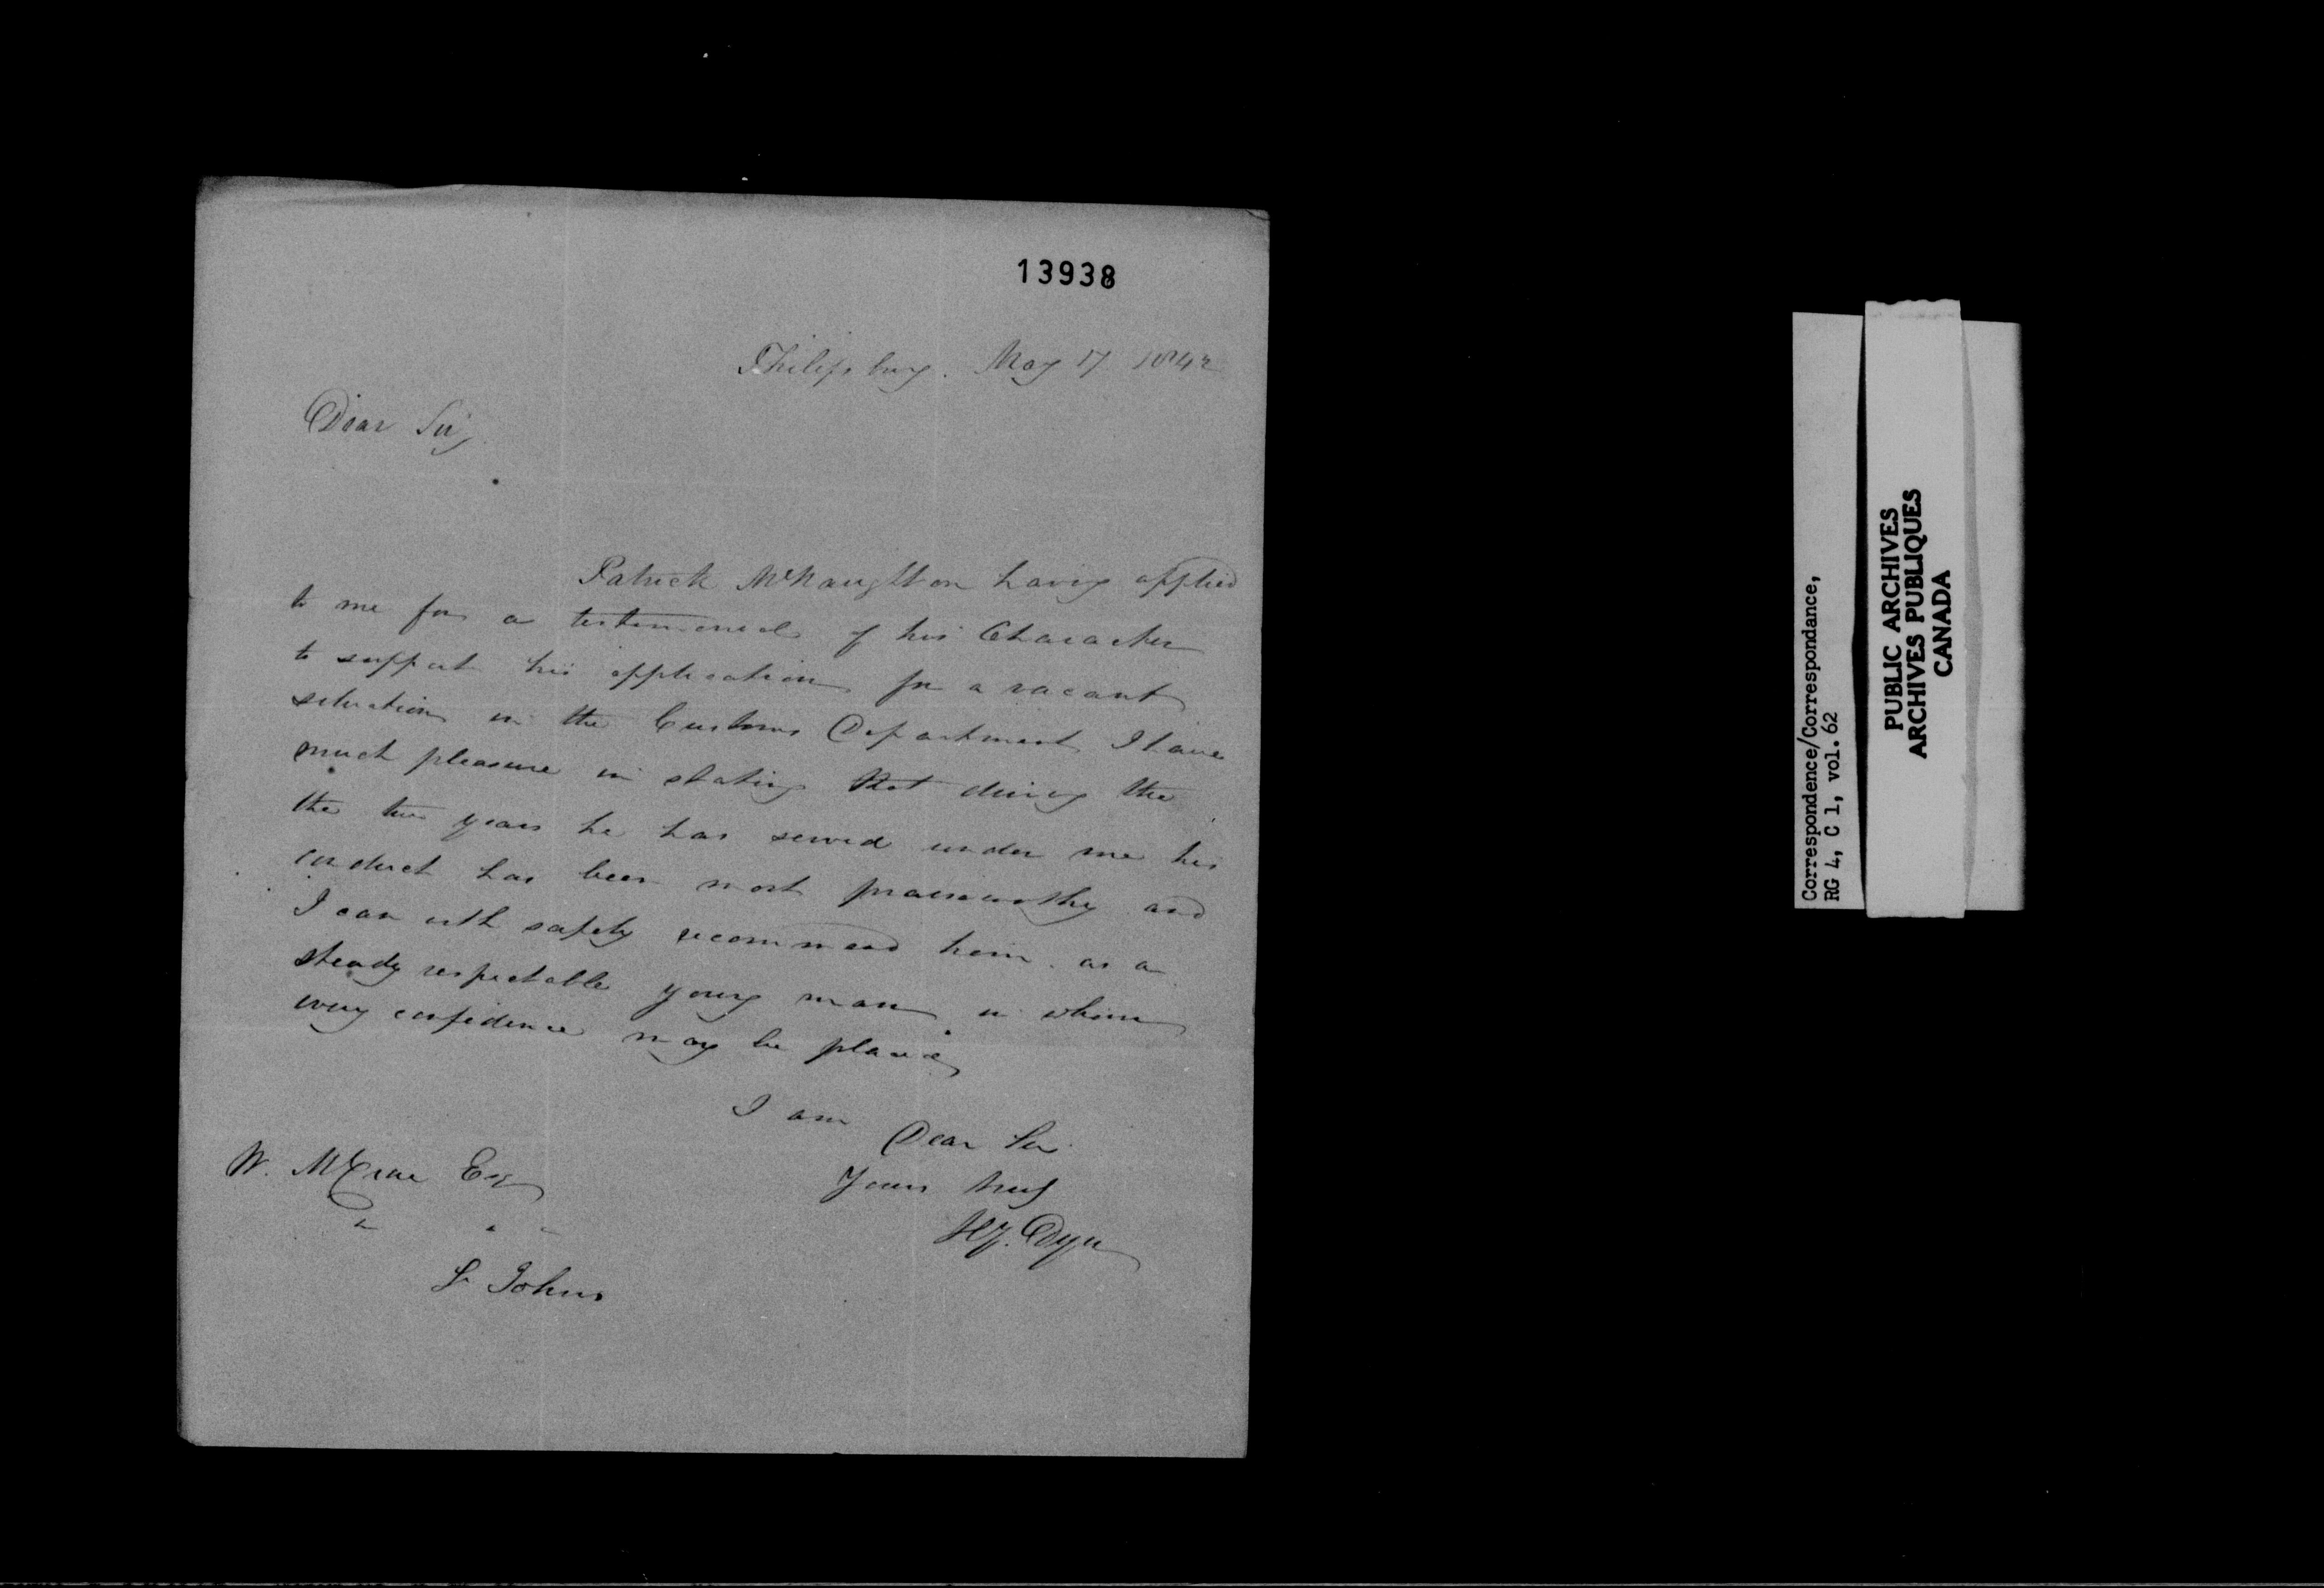 13938
Philipsburg. May 17 1842
Dear Sir,
Patrick McNaughton having applied
to me for a testimonial of his Character
to support his application for a vacant
situation in the Customs Department I have
much pleasure in stating that during the
the two years he has served under me his
conduct has been most praiseworthy and
I can with safety recommend him as a
steady respectable young man in whom
every confidence may be placed
I am
Dear Sir
Yours truly
Dyer
W. McCrae Esq
" " "
St Johns
Correspondence/Correspondance,
RG 4, C 1, vol. 62
PUBLIC ARCHIVES
ARCHIVES PUBLIQUES
CANADA